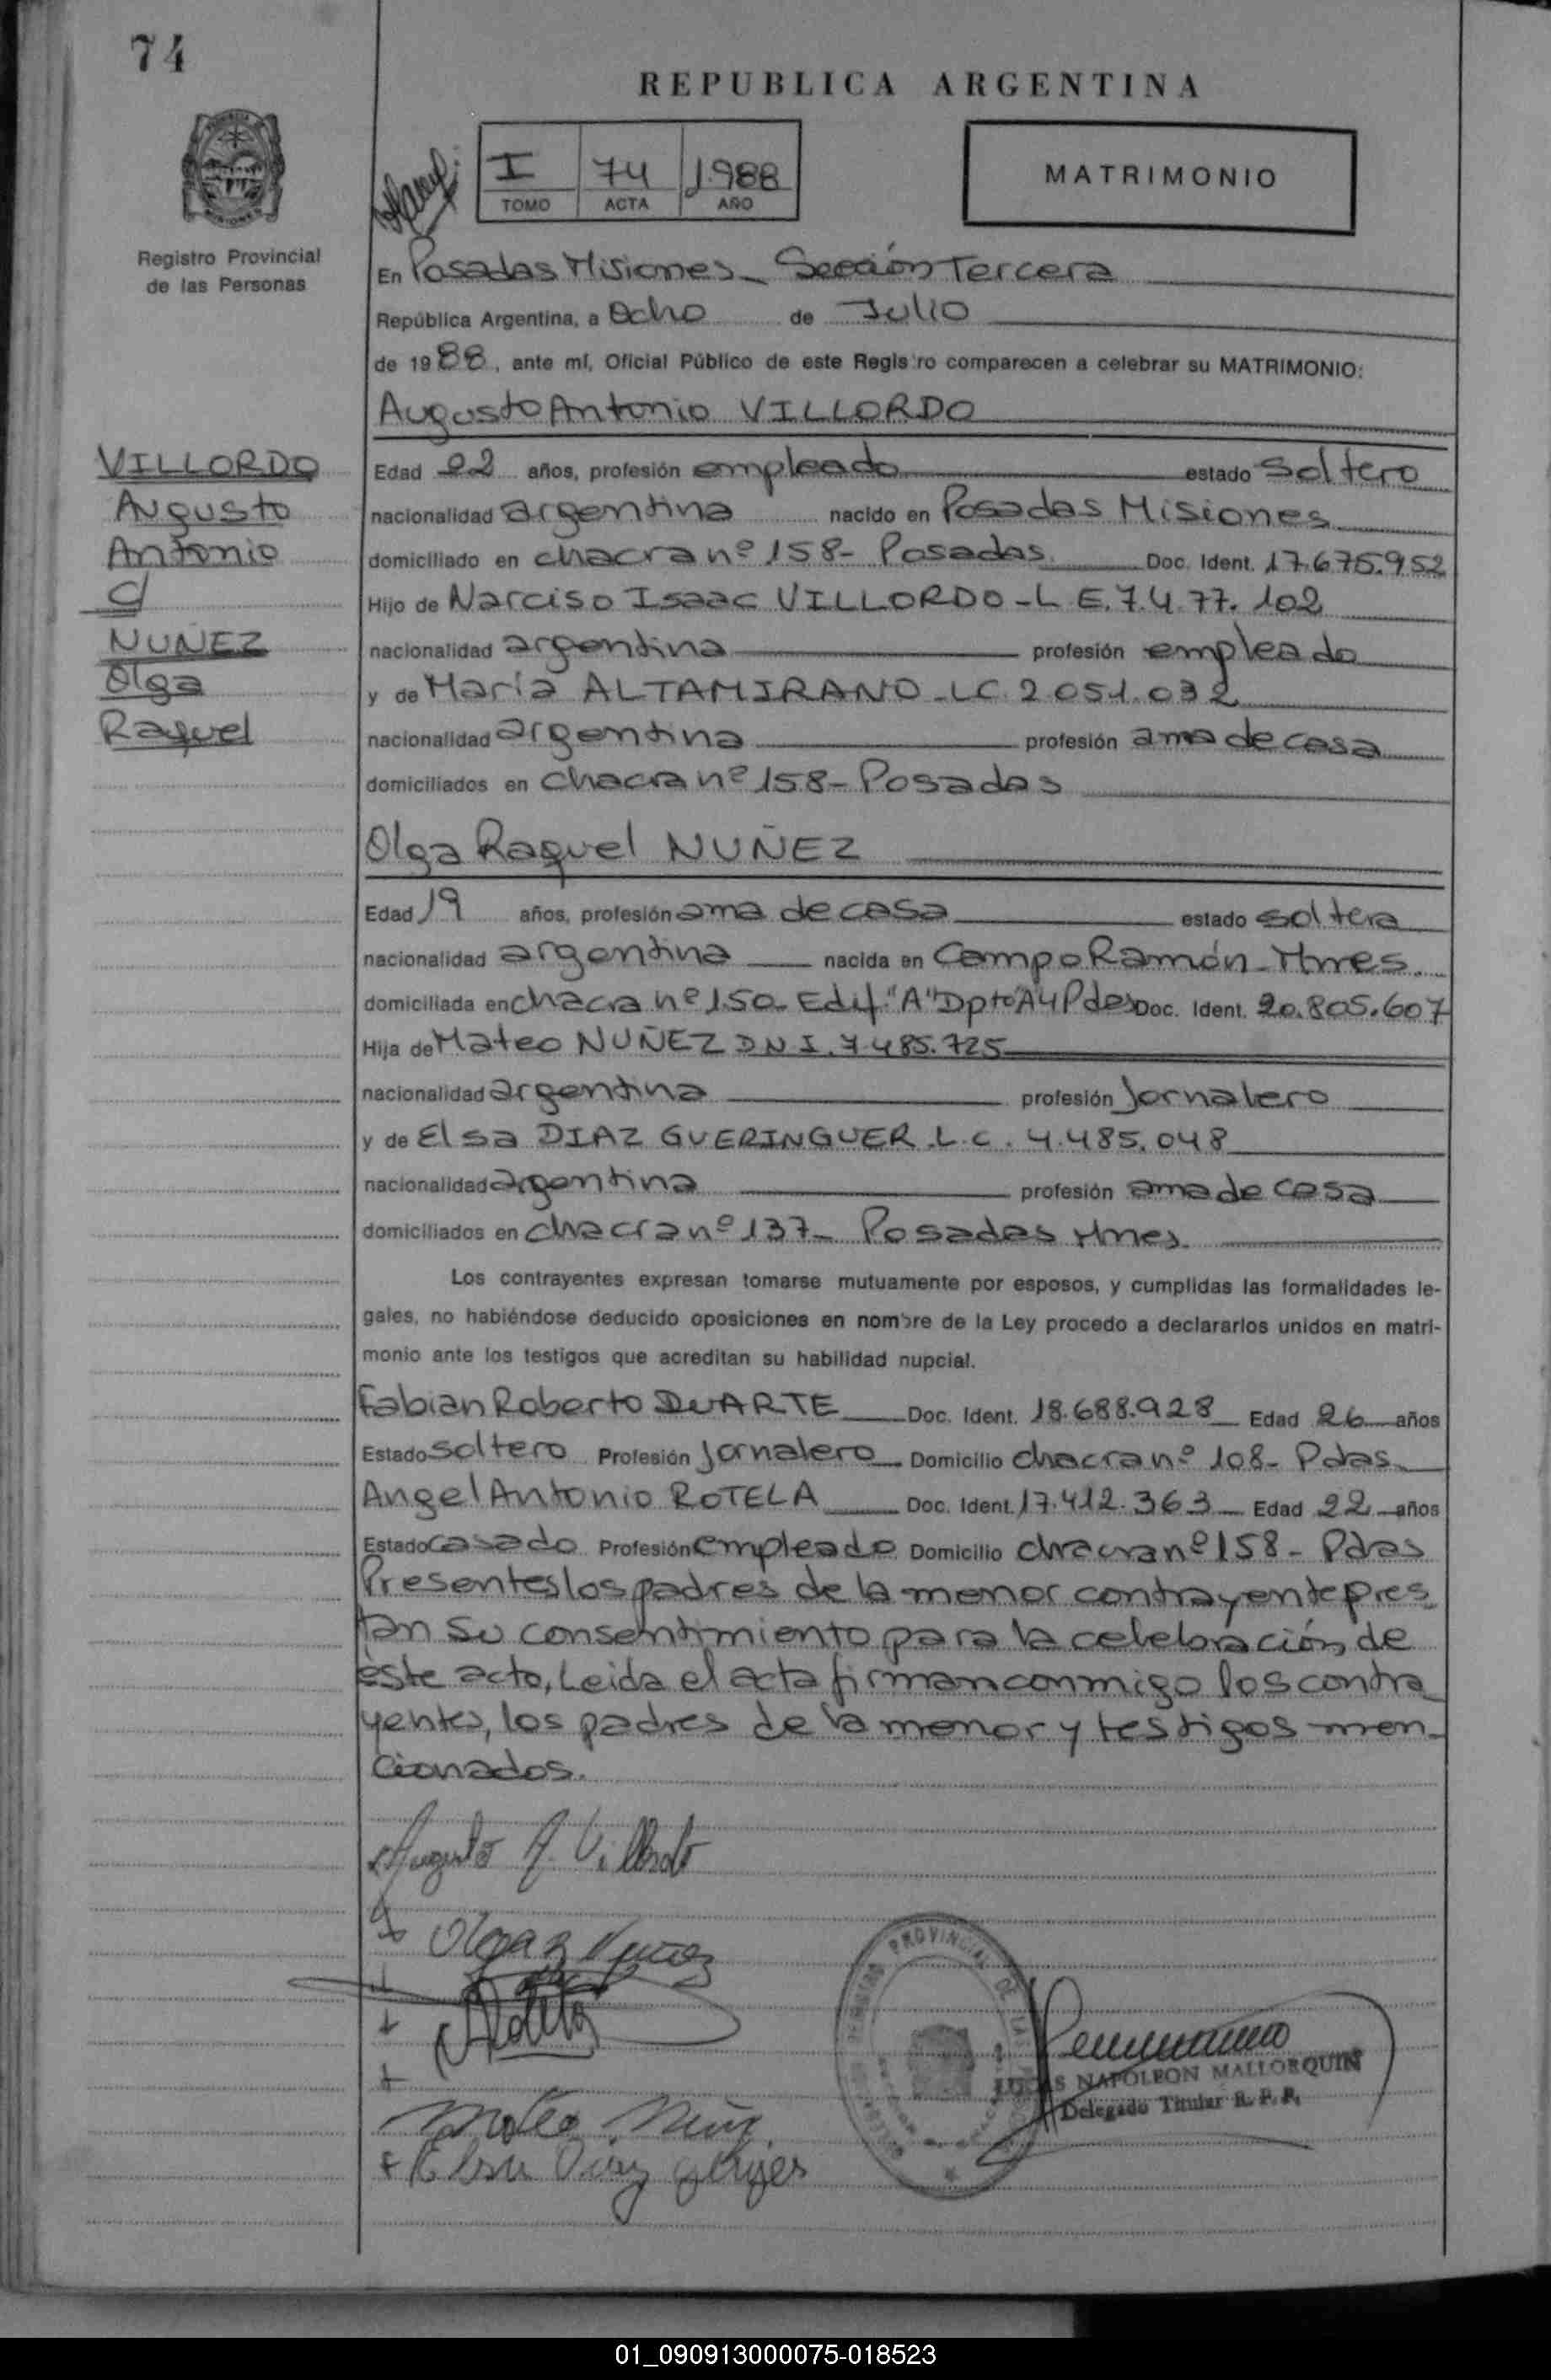 74
REPUBLICA ARGENTINA
I 74 1.988
TOMO ACTA AÑO
MATRIMONIO
Registro Provincial
de las Personas
En Posadas Misiones - Sección Tercera
República Argentina, a Ocho de Julio
de 1988, ante mí, Oficial Público de este Registro comparecen a celebrar su MATRIMONIO:
Augusto Antonio VILLORDO
VILLORDO
Augusto
Antonio
c/
NUÑEZ
Olga
Raquel
Edad 22 años, profesión empleado estado Soltero
nacionalidad argentina nacido en Posadas Misiones
domiciliado en chacra nº 158- Posadas Doc. Ident. 17.675.952
Hijo de Narciso Isaac VILLORDO - L E. 7.4 77. 102
nacionalidad argentina profesión empleado
y de María ALTAMIRANO - LC. 2.051.032
nacionalidad argentina profesión ama de casa
domiciliados en chacra nº 158- Posadas
Olga Raquel NUÑEZ
Edad 19 años, profesión ama de casa estado soltera
nacionalidad argentina nacida en Campo Ramón - Mnes.
domiciliada en chacra nº 150- Edif. "A" Dpto A4 Pdas Doc. Ident. 20.805.607
Hija de Mateo NUÑEZ D N I. 7.485.725
nacionalidad argentina profesión Jornalero
y de Elsa DIAZ GUERINGUER. L.C. 4.485.048
nacionalidad argentina profesión ama de casa
domiciliados en chacra nº 137- Posadas Mnes.
Los contrayentes expresan tomarse mutuamente por esposos, y cumplidas las formalidades le-
gales, no habiéndose deducido oposiciones en nombre de la Ley procedo a declararlos unidos en matri-
monio ante los testigos que acreditan su habilidad nupcial.
Fabian Roberto DUARTE Doc. Ident. 18.688.928 Edad 26 años
Estado soltero Profesión Jornalero Domicilio chacra nº 108- Pdas.
Angel Antonio ROTELA Doc. Ident. 17.412.363 Edad 22 años
Estado casado Profesión empleado Domicilio chacra nº 158- Pdas
Presentes los padres de la menor contrayente pres
tan su consentimiento para la celebración de
éste acto, Leida el acta firman conmigo los contra
yentes, los padres de la menor y testigos men-
cionados.
Augusto A. Villordo
Olga R Nuñez
Mateo Nuñez
Elsa Diaz
LUCAS NAPOLEON MALLORQUIN
Delegado Titular R. P. P.
01_090913000075-018523